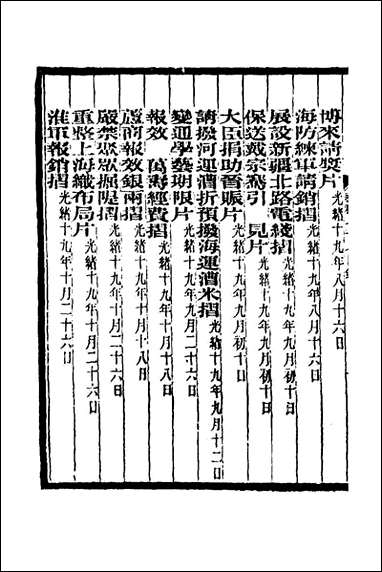 博來請獎片光緒十九年八月十六日
海防練軍請銷摺光緒十九年八月十六日
展設新疆北路電綫摺光緒十九年九月初十日
保送戴宗騫引 見片光緒十九年九月初十日
大臣捐助晉賑片光緒十九年九月初十日
請撥河運漕折預撥海運漕米摺光緒十九年九月十二日
變通學藝期限片光緒十九年九月二十六日
報效 萬壽經費摺光緒十九年十月十八日
蘆商報效銀兩摺光緒十九年十月十八日
嚴禁聚眾摺光緒十九年十月二十六日
重整上海織布局片光緒十九年十月二十六日
淮軍報銷摺光緒十九年十月二十六日